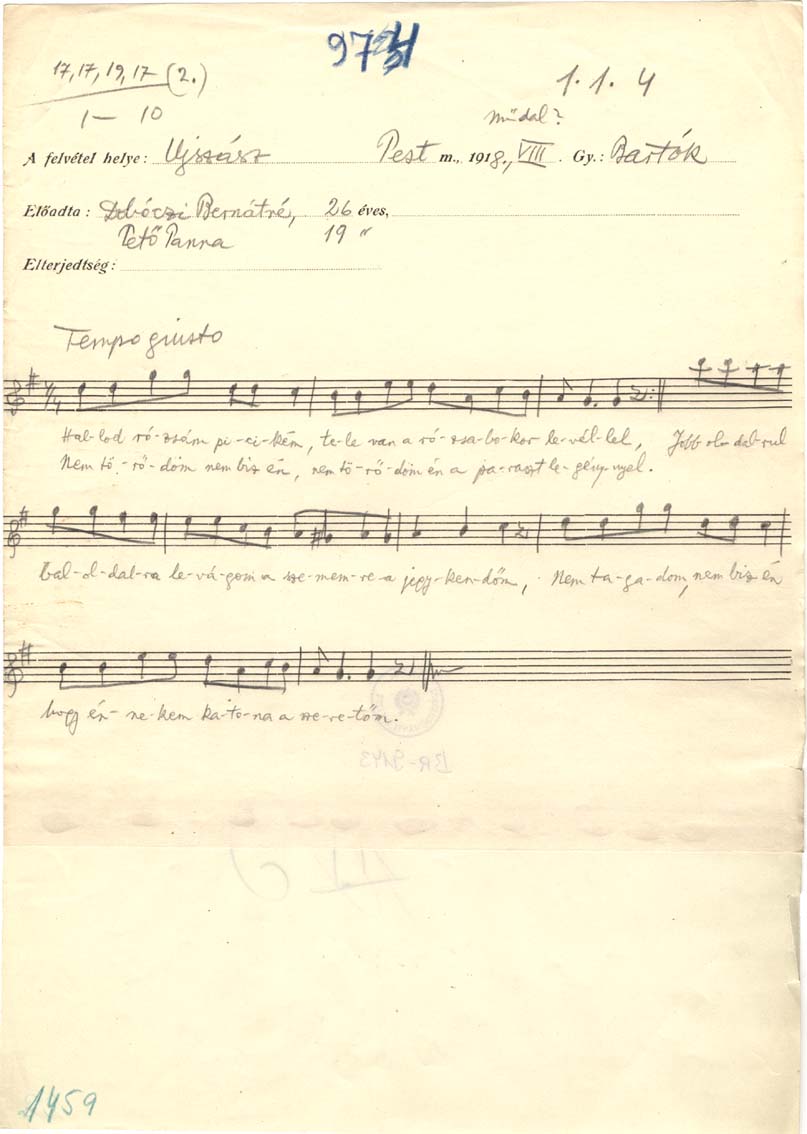 17, 17, 19, 17 (2.)
1.1.4
1 – 10
műdal?
A felvétel helye: Ujszász Pest m., 1918., VIII. Gy.: Bartók
Előadta: Bernátné, 26 éves,
Pető Panna 19 "
Elterjedtség:
Tempo giusto
4/4
Hal-lod ró-zsám pi-ci-kém, te-le van a ró-zsa-bo-kor le-vél-lel, Jobb ol-dal-rul
Nem tö-rő-döm nem biz én, nem tö-rő-döm én a pa-raszt le-gény-nyel.
bal-ol-dal-ra le-vá-gom a sze-mem-re a jegy-ken-dőm, Nem ta-ga-dom, nem biz én
hogy én-ne-kem ka-to-na a sze-re-tőm.
BR-9143
1459